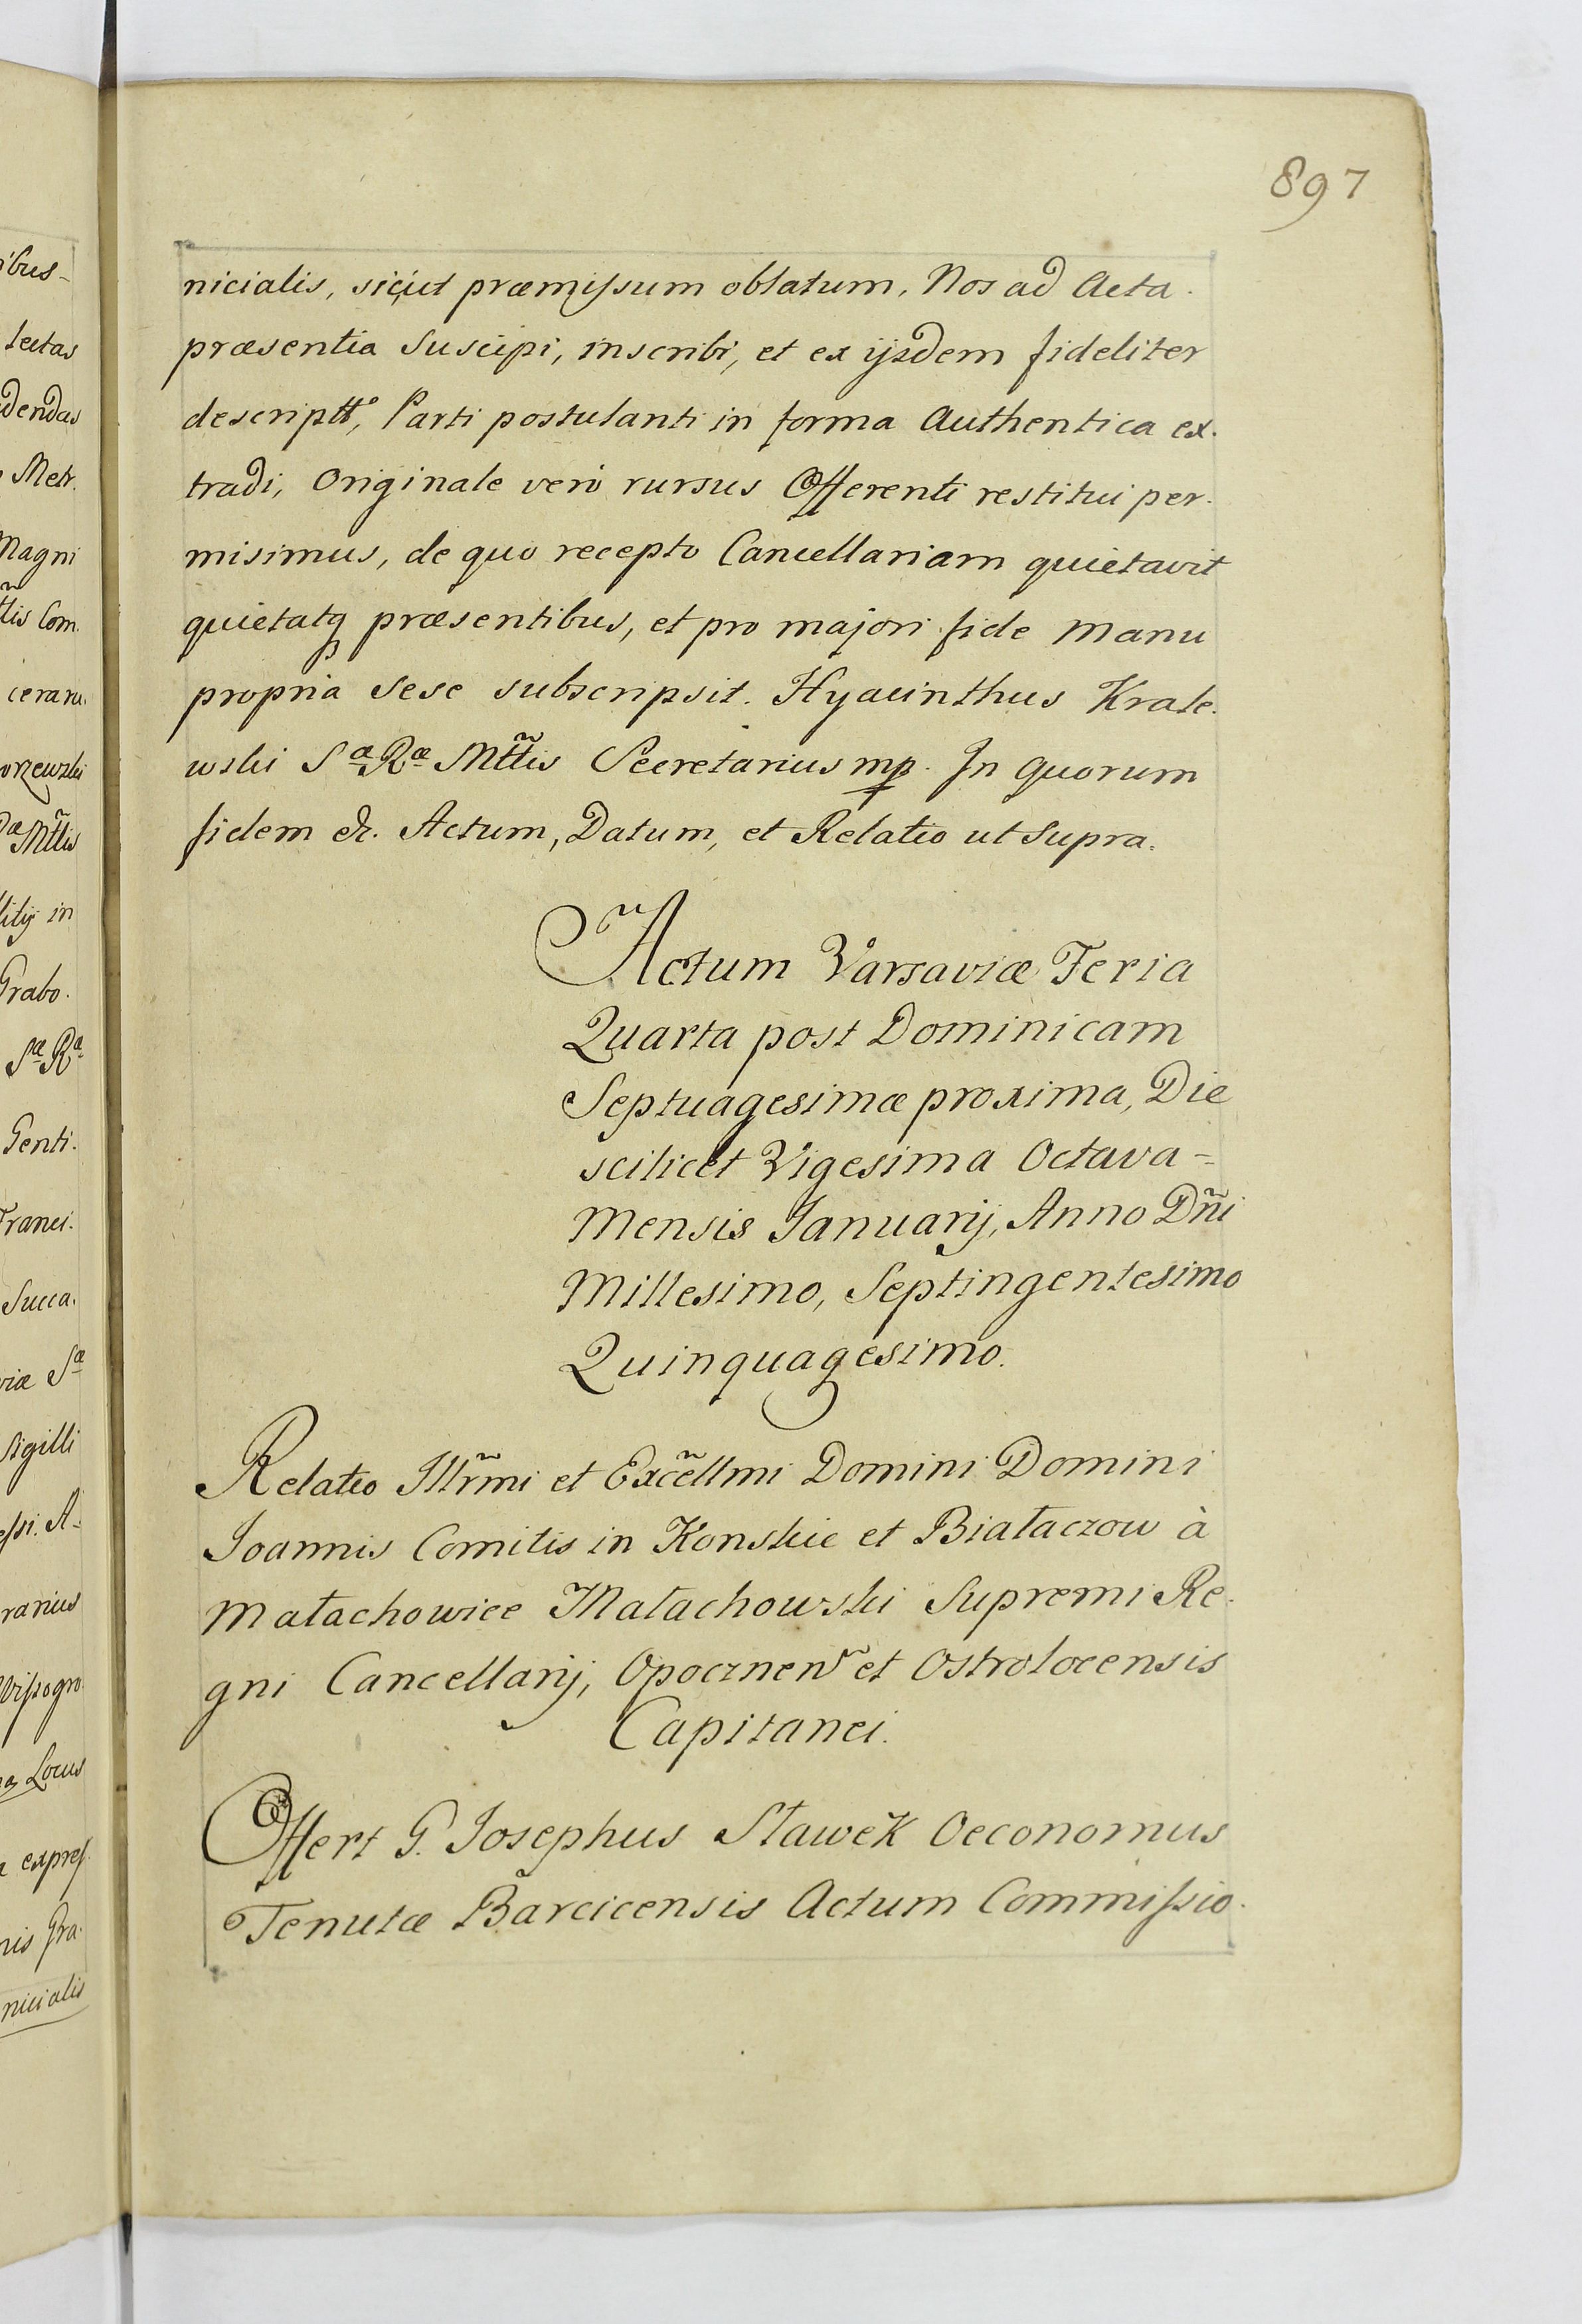 897
nicialis, sicut præmissum oblatum, Nos ad Acta
præsentia Suscipi, inscribi, et ex ijsdem fideliter
descriptt°, Parti postulanti in forma Authentica ex.
tradi, Originale verò rursus Offerenti restitui per.
misimus, de quo recepto Cancellariam quietavit
quietatq præsentibus, et pro majori fide Manu
propria sese subscripsit. Hyacinthus Krale.
wski Sæ Ræ Mttis Secretarius mp. In quorum
fidem &. Actum, Datum, et Relatio ut Supra.
Actum Varsaviæ Feria
Quarta post Dominicam
Septuagesimæ proxima, Die
scilicet Vigesima Octava =
Mensis Januarij, Anno Dñi
Millesimo, Septingentesimo
Quinquagesimo.
Relatio Illr̃mi et Excẽllmi Domini Domini
Joannis Comitis in Konskie et Białaczow à
Małachowice Małachowski Supremi Re.
gni Cancellarij, Opocznen et Ostrolocensis
Capitanei.
Offert G. Josephus Sławek Oeconomus
Tenutæ Barcicensis Actum Commissio.
ibus
lectas
dendas
Metr.
Magni
ttis Com.
orzewski
Mttis
in
Grabo.
Sæ Ræ
Genti.
Franci.
Succa.
viæ Sæ
Sigilli
A.
rarius
Locus
expres
nis Gra.
nicialis